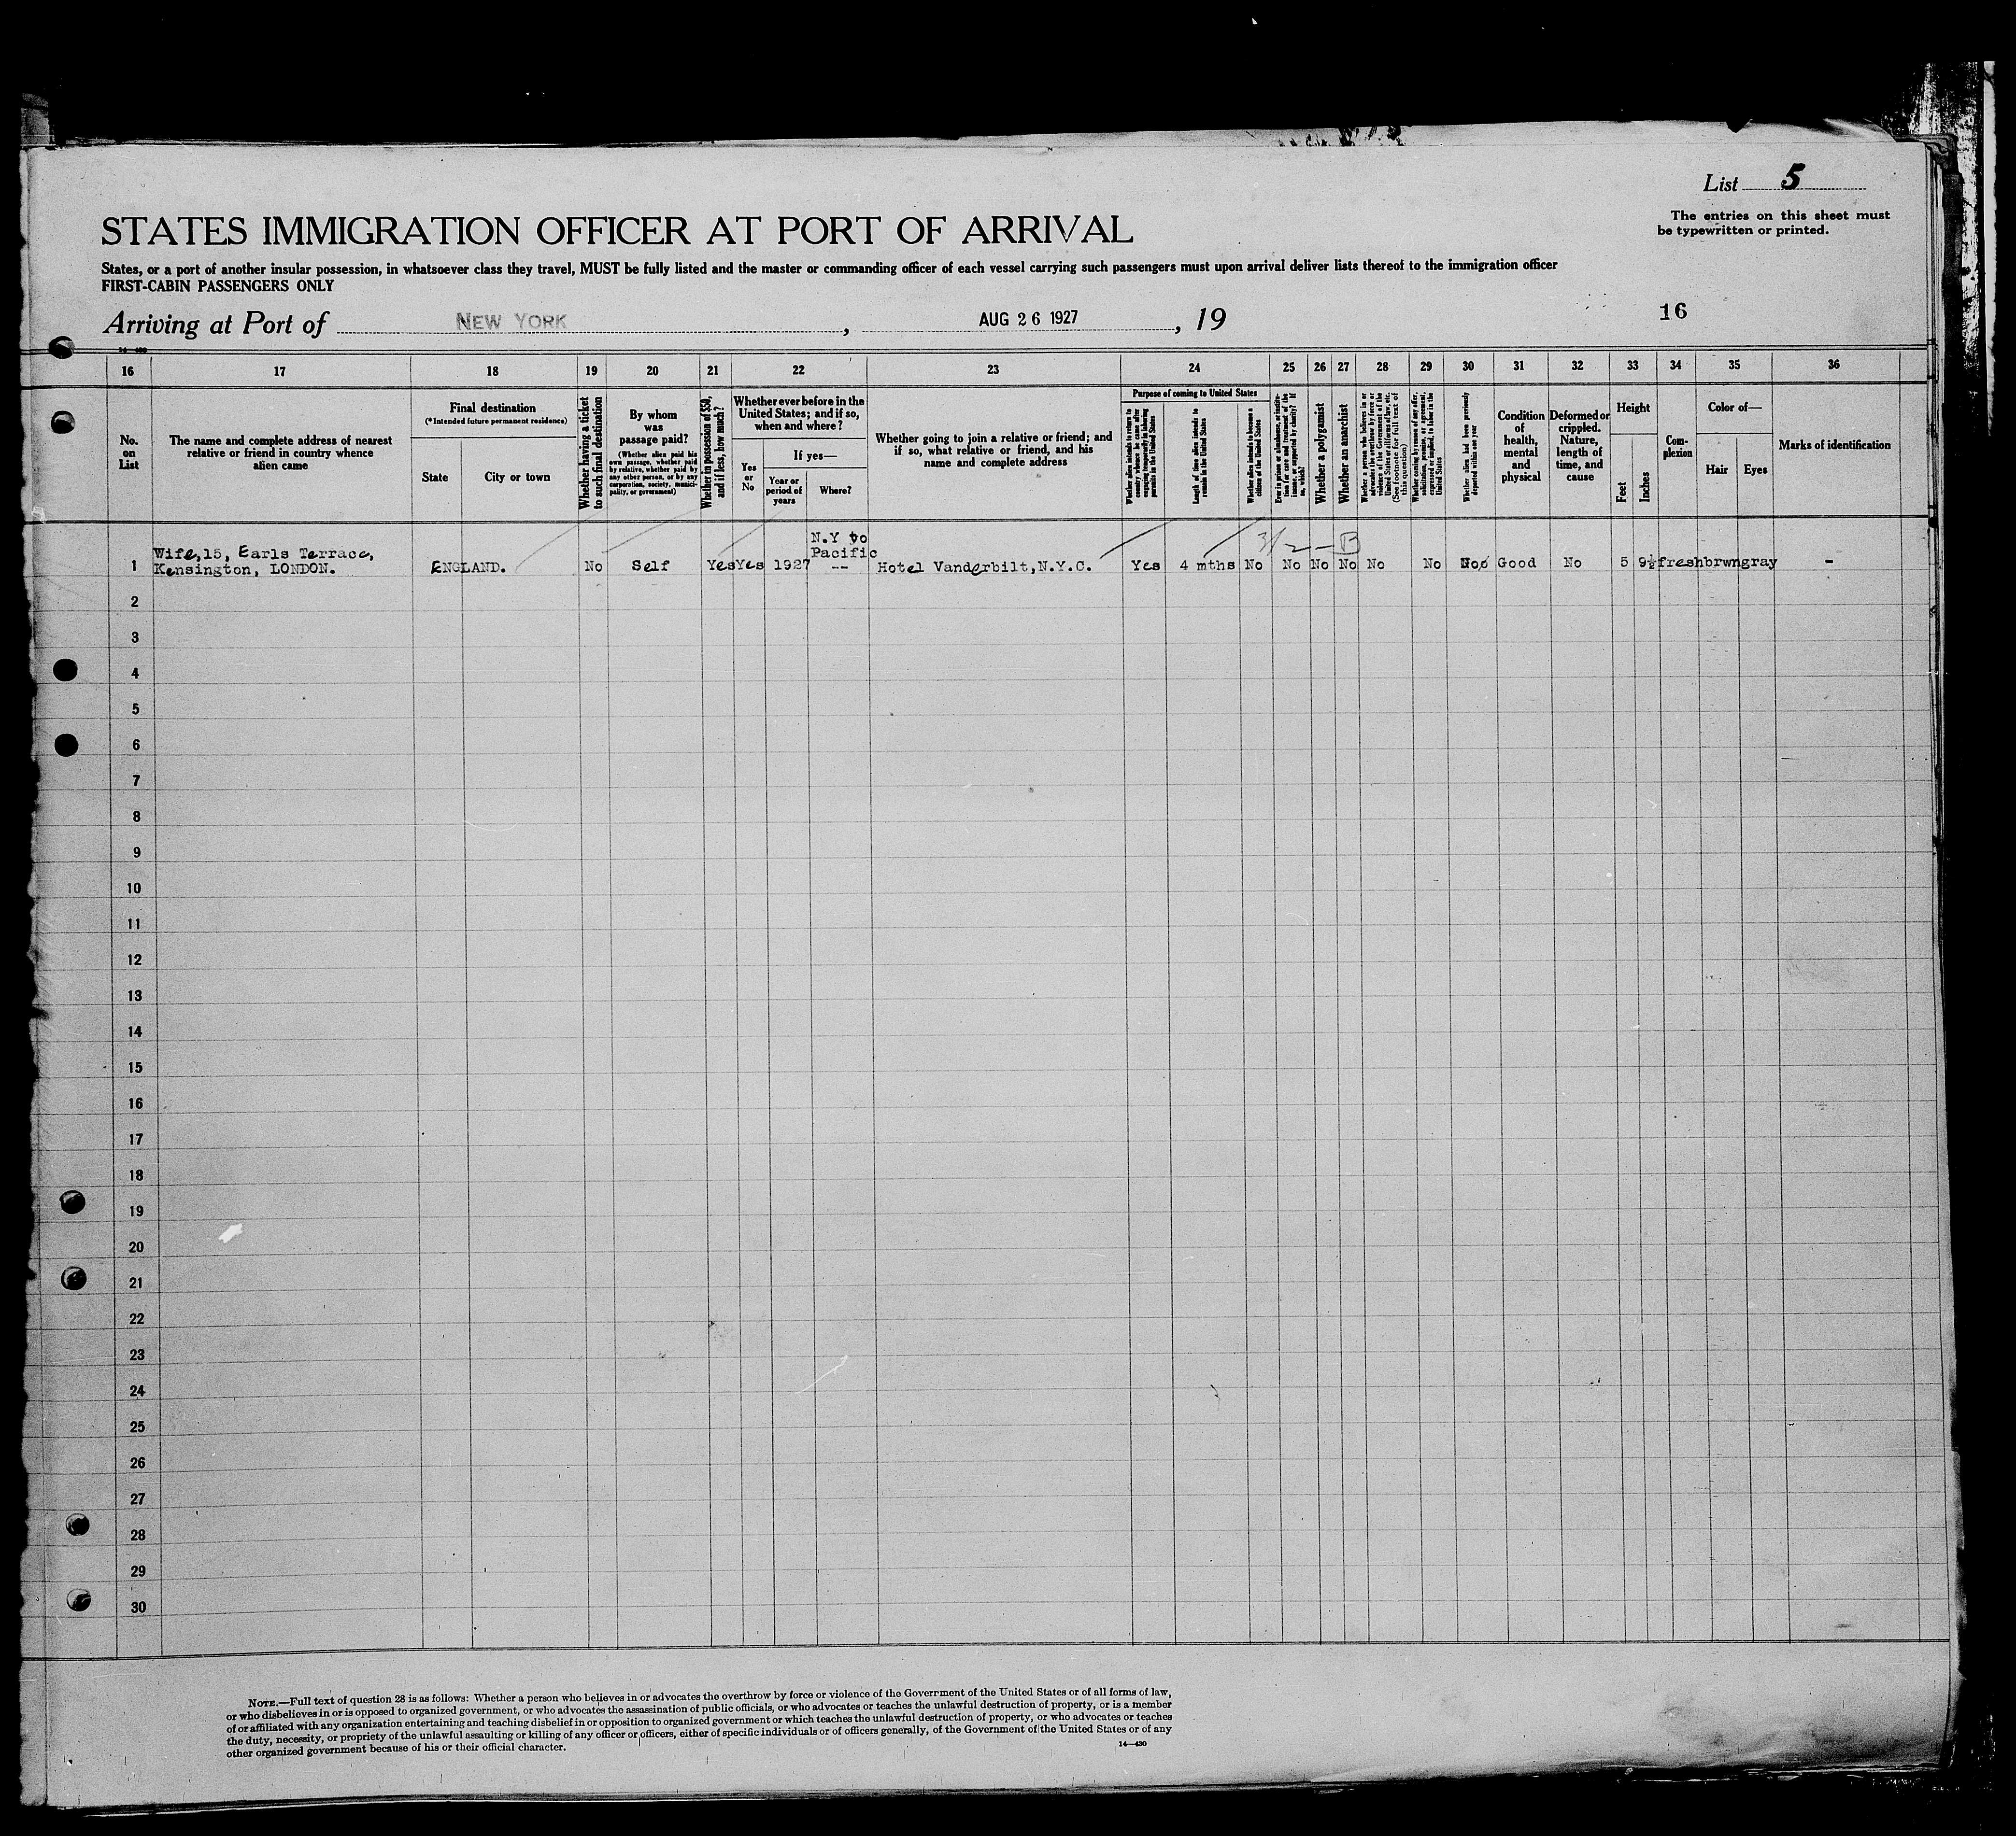 List 5
The entries on this sheet must
be typewritten or printed.
STATES IMMIGRATION OFFICER AT PORT OF ARRIVAL
States, or a port of another insular possession, in whatsoever class they travel, MUST be fully listed and the master or commanding officer of each vessel carrying such passengers must upon arrival deliver lists thereof to the immigration officer
FIRST-CABIN PASSENGERS ONLY
Arriving at Port of NEW YORK, AUG 26 1927, 19
16
16 17 18 19 20 21 22 23 24 25 26 27 28 29 30 31 32 33 34 35 36
No.
on
List
The name and complete address of nearest
relative or friend in country whence
alien came
Final destination
(*Intended future permanent residence)
State
City or town
Whether having a ticket
to such final destination
By whom
was
passage paid?
(Whether alien paid his
own passage, whether paid
by relative, whether paid by
any other person, or by any
corporation, society, munici-
pality, or government)
Whether in possession of $50,
and if less, how much?
Whether ever before in the
United States; and if so,
when and where?
Yes
or
No
If yes—
Year or
period of
years
Where?
Whether going to join a relative or friend; and
if so, what relative or friend, and his
name and complete address
Purpose of coming to United States
Whether alien intends to return to
country whence he came after
engaging temporarily in laboring
pursuits in the United States
Length of time alien intends to
remain in the United States
Whether alien intends to become a
citizen of the United States
Ever in prison or almshouse, or institu-
tion for care and treatment of the
insane, or supported by charity? If
so, which?
Whether a polygamist
Whether an anarchist
Whether a person who believes in or
advocates the overthrow by force or
violence of the Government of the
United States or all forms of law, etc.
(See footnote for full text of
this question)
Whether coming by reason of any offer,
solicitation, promise, or agreement,
expressed or implied, to labor in the
United States
Whether alien had been previously
deported within one year
Condition
of
health,
mental
and
physical
Deformed or
crippled.
Nature,
length of
time, and
cause
Height
Feet
Inches
Com-
plexion
Color of—
Hair
Eyes
Marks of identification
N.Y to
Wife,15, Earls Terrace, Pacific 3/2 - B
1 Kensington, LONDON. ENGLAND. No Self Yes Yes 1927 -- Hotel Vanderbilt,N.Y.C. Yes 4 mths No No No No No No No Good No 5 9½ fresh brwn gray -
2
3
4
5
6
7
8
9
10
11
12
13
14
15
16
17
18
19
20
21
22
23
24
25
26
27
28
29
30
NOTE.—Full text of question 28 is as follows: Whether a person who believes in or advocates the overthrow by force or violence of the Government of the United States or of all forms of law,
or who disbelieves in or is opposed to organized government, or who advocates the assassination of public officials, or who advocates or teaches the unlawful destruction of property, or is a member
of or affiliated with any organization entertaining and teaching disbelief in or opposition to organized government or which teaches the unlawful destruction of property, or who advocates or teaches
the duty, necessity, or propriety of the unlawful assaulting or killing of any officer or officers, either of specific individuals or of officers generally, of the Government of the United States or of any
other organized government because of his or their official character.
14—430